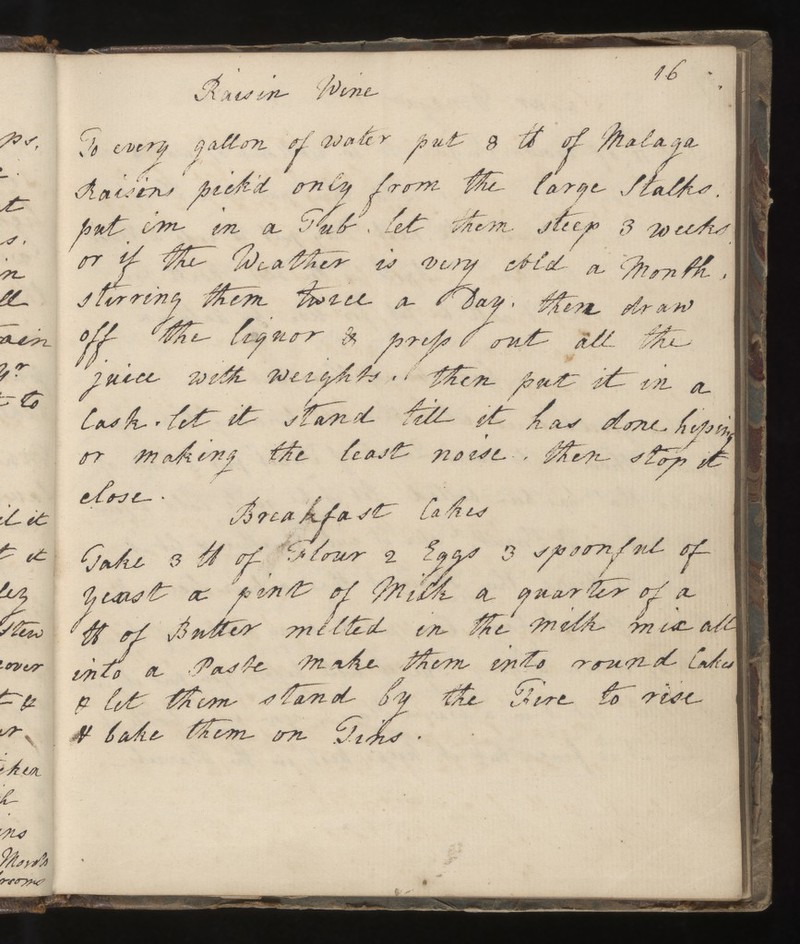 16
Raisin Wine
To every gallon of water put 8 ℔ of Malaga
Raisins pick'd only from the large Stalks.
put im in a Tub. let them steep 3 weeks
or if the Weather is very cold a Month.
stirring them twice a Day. then draw
off the liquor & press out all the
juice with weights. then put it in a
Cask. let it stand till it has done hissing
or making the least noise. then stop it
close.
Breakfast Cakes
Take 3 ℔ of Flour 2 Eggs 3 spoonful of
yeast a pint of Milk a quarter of a
℔ of Butter melted in the milk mix all
into a Paste make them into round Cakes
& let them stand by the Fire to rise
& bake them on Tins.